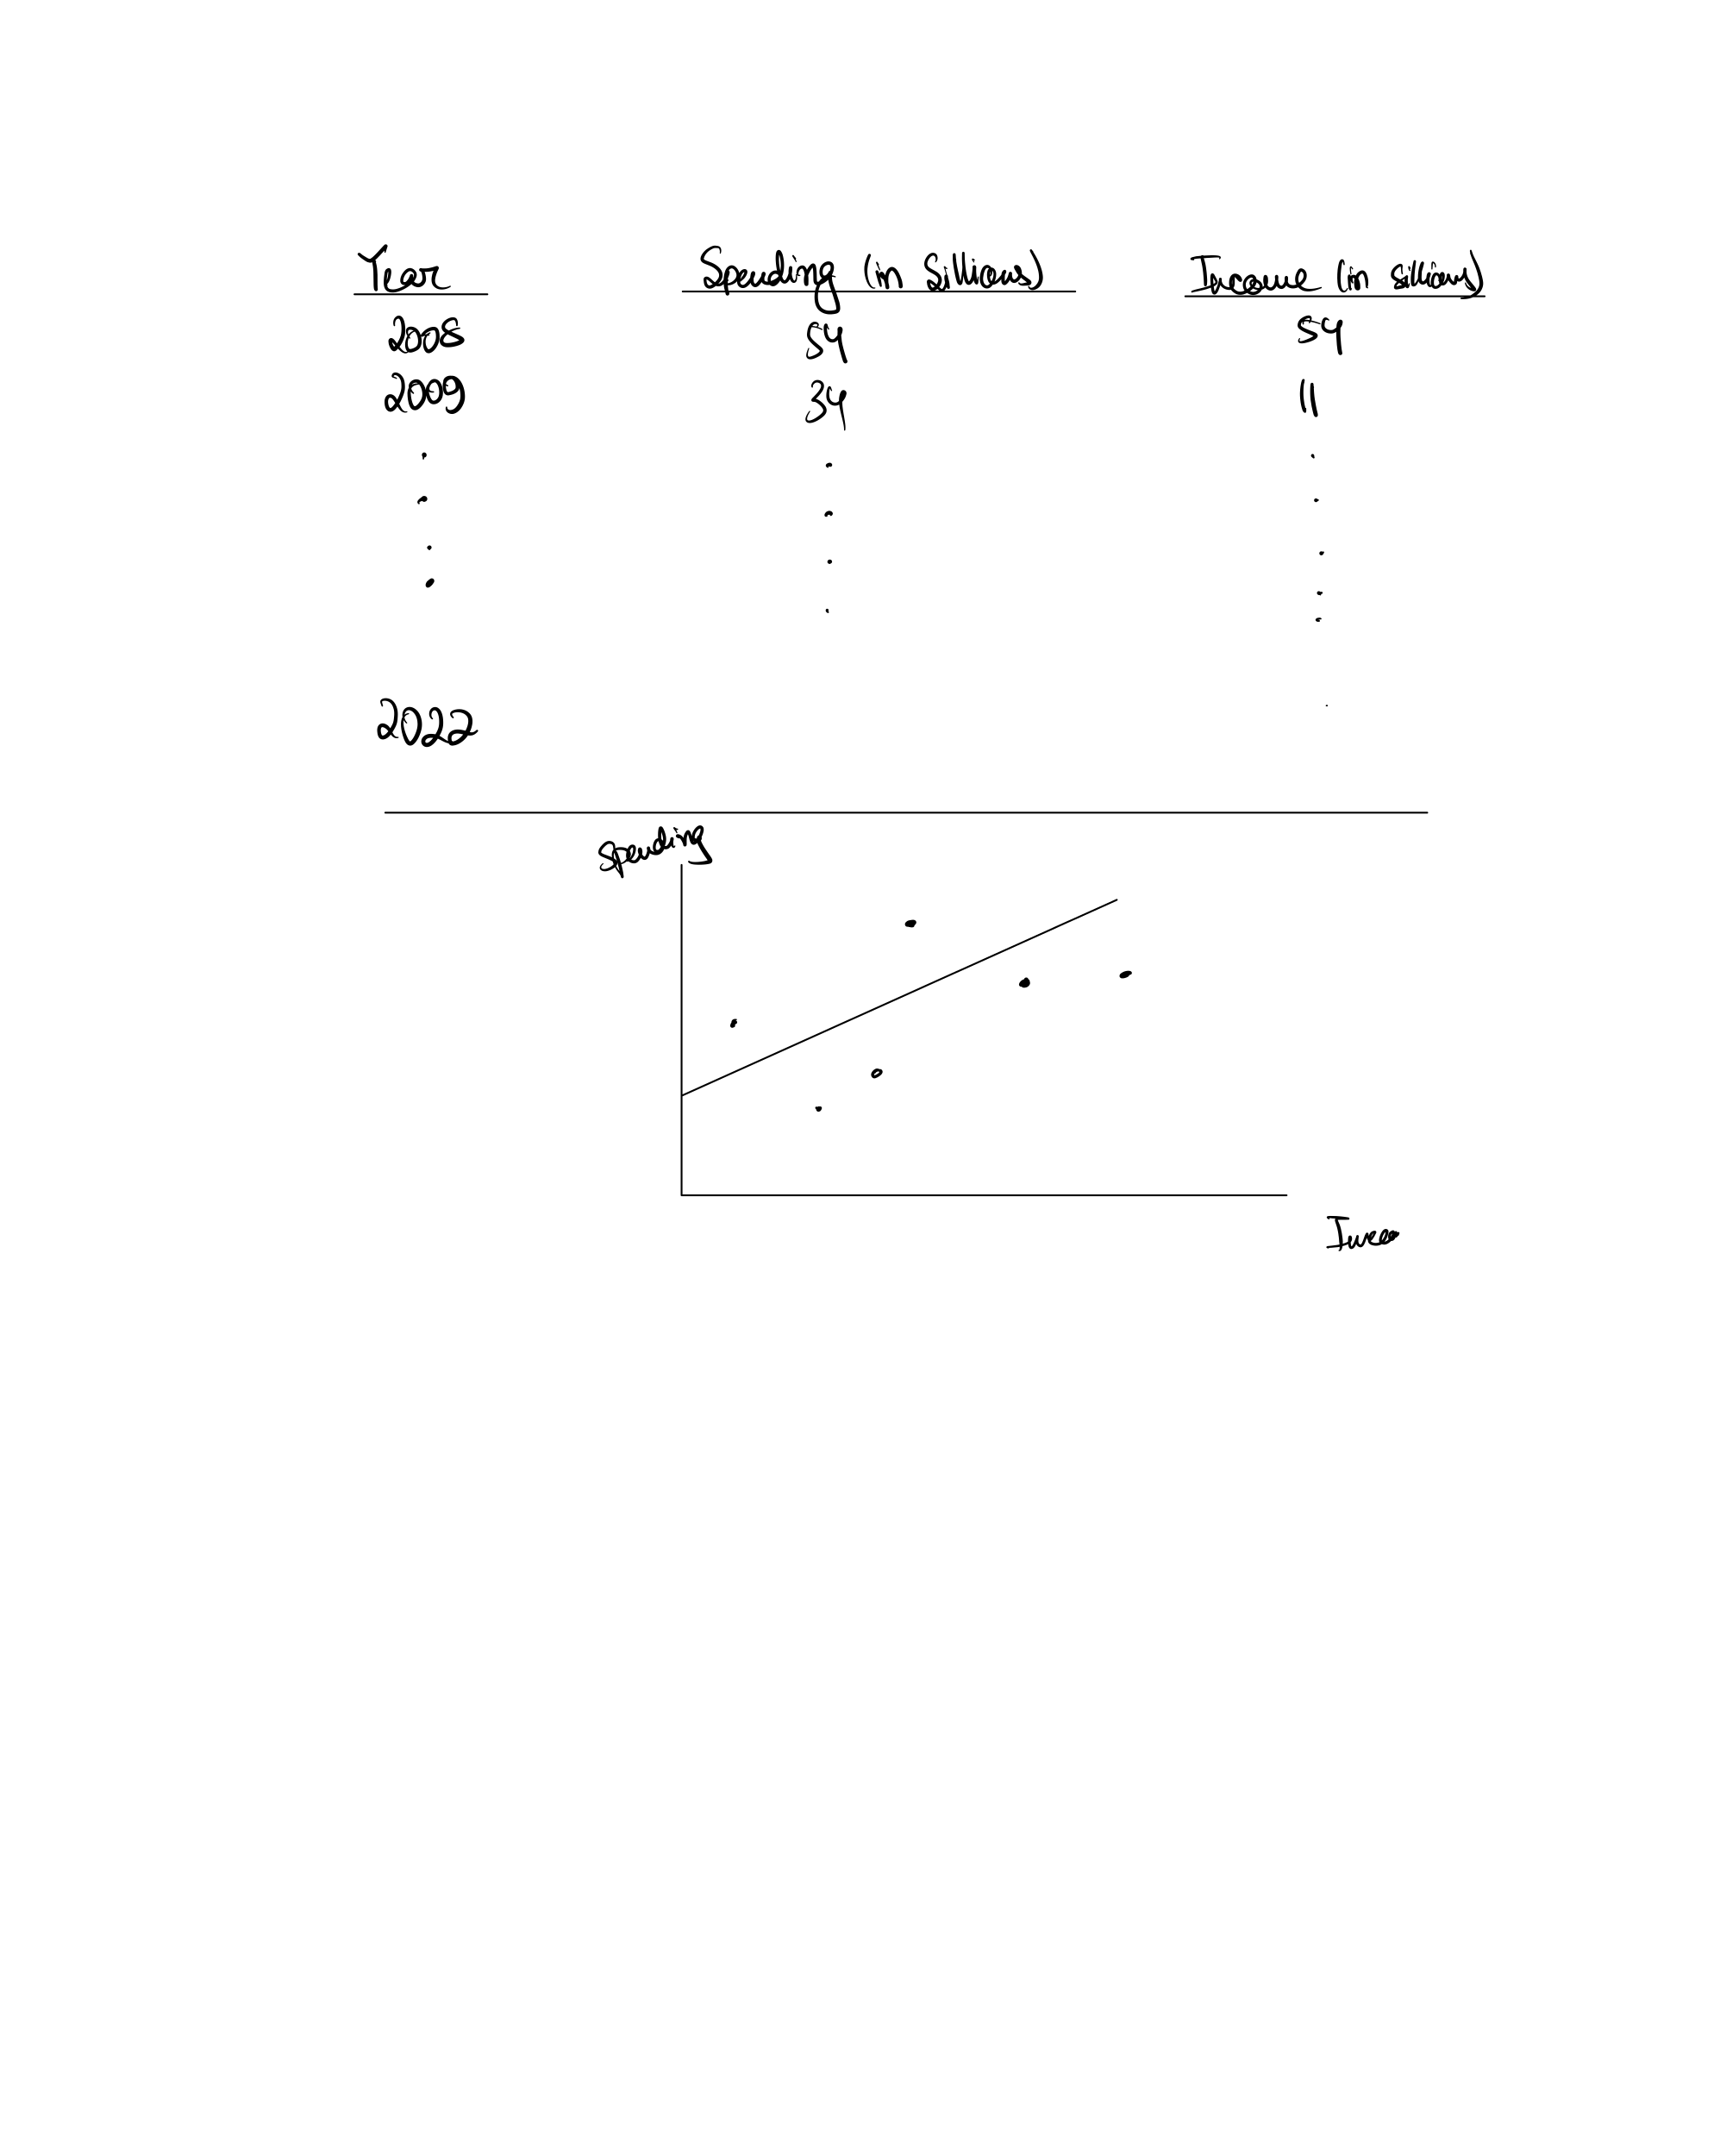 Year Spending (in billions) Income (in billions)
2008 54 54
2009 34 11
2022
Spending